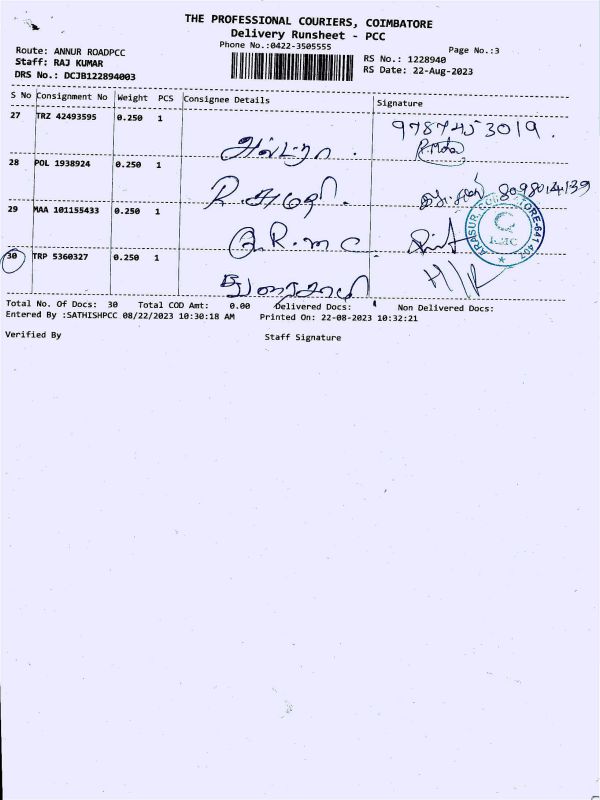 THE PROFESSIONAL COURIERS, COIMBATORE
Delivery Runsheet - PCC
Phone No.:0422-3505555
Page No.:3
Route: ANNUR ROADPCC
RS No.: 1228940
Staff: RAJ KUMAR
RS Date: 22-Aug-2023
DRS No.: DCJB122894003
S No Consignment No Weight PCS Consignee Details Signature
27 TRZ 42493595 0.250 1
9787453019.
28 POL 1938924 0.250 1
8098014139
29 MAA 101155433 0.250 1
R.M.C
30 TRP 5360327 0.250 1
Total No. Of Docs: 30 Total COD Amt: 0.00 Delivered Docs: Non Delivered Docs:
Entered By :SATHISHPCC 08/22/2023 10:30:18 AM Printed On: 22-08-2023 10:32:21
Verified By Staff Signature